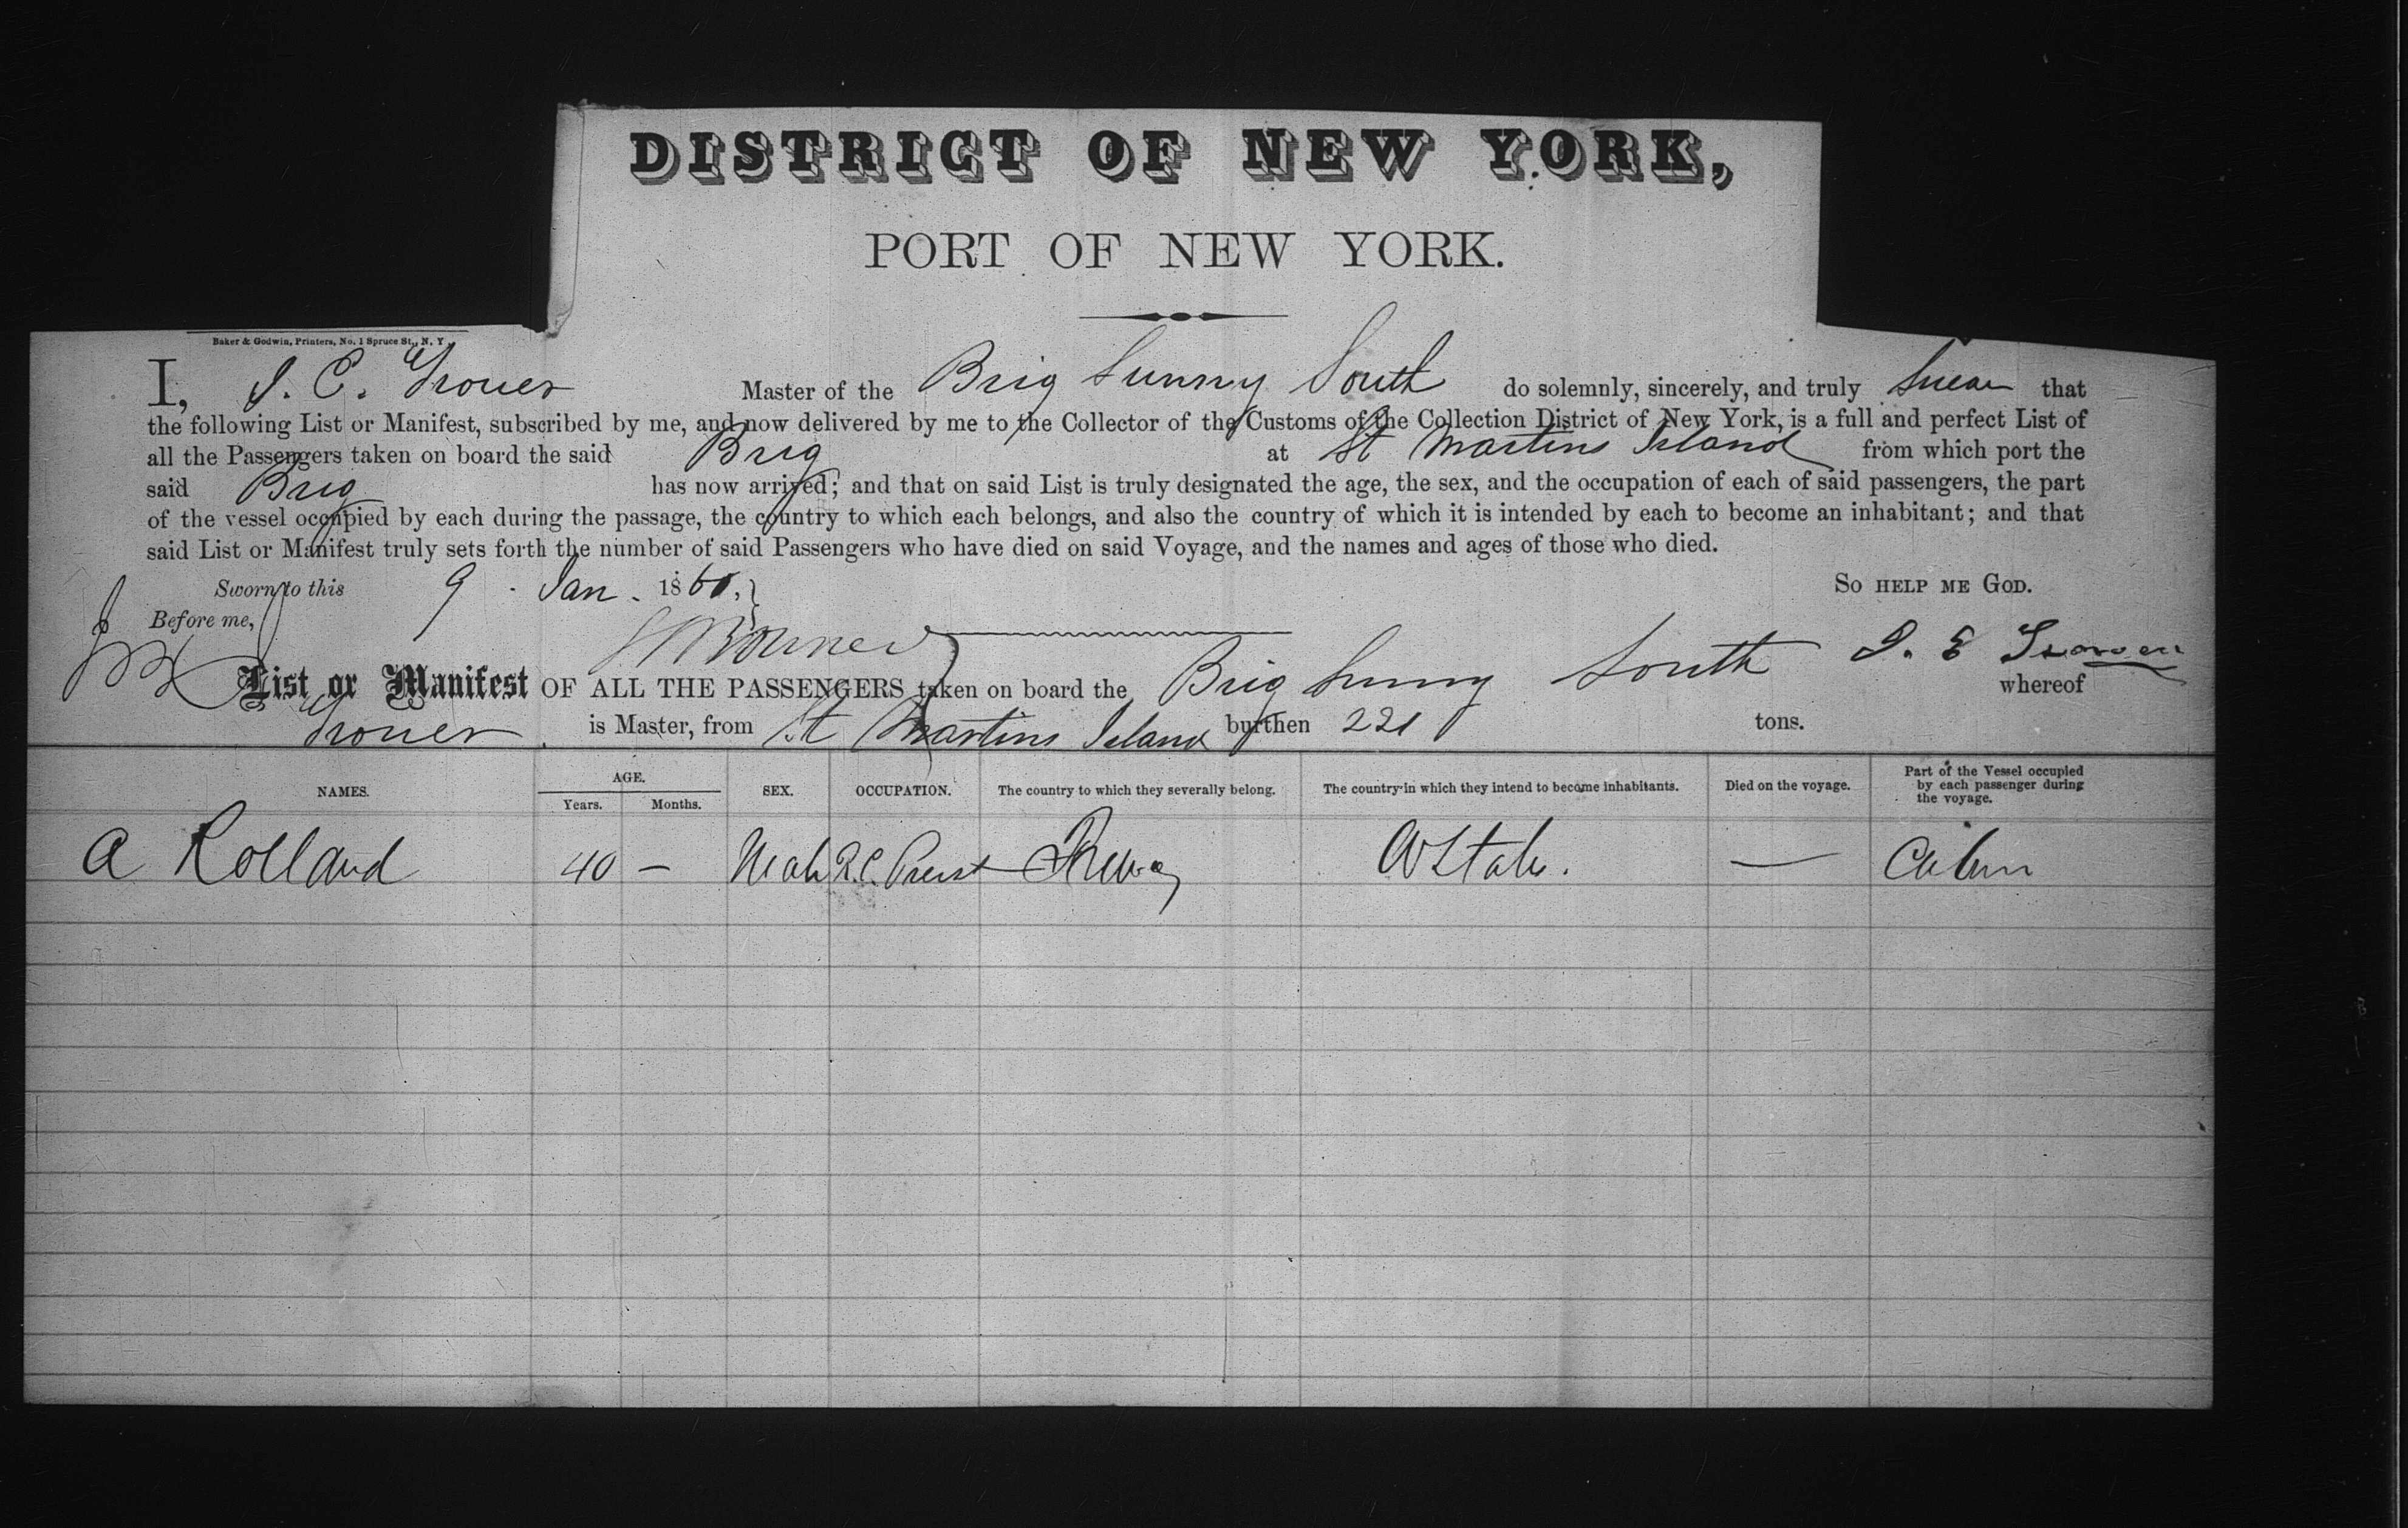 DISTRICT OF NEW YORK,
PORT OF NEW YORK.
Baker & Godwin, Printers, No. 1 Spruce St., N. Y.
I, Master of the Brig Sunny South do solemnly, sincerely, and truly swear that
the following List or Manifest, subscribed by me, and now delivered by me to the Collector of the Customs of the Collection District of New York, is a full and perfect List of
all the Passengers taken on board the said Brig at St Martins Island from which port the
said Brig has now arrived; and that on said List is truly designated the age, the sex, and the occupation of each of said passengers, the part
of the vessel occupied by each during the passage, the country to which each belongs, and also the country of which it is intended by each to become an inhabitant; and that
said List or Manifest truly sets forth the number of said Passengers who have died on said Voyage, and the names and ages of those who died.
Sworn to this 9 Jan. 186 So help me God.
Before me,
List or Manifest OF ALL THE PASSENGERS taken on board the Brig Sunny South whereof
is Master, from St Martins Island burthen 221 tons.
NAMES. AGE. Years. Months. SEX. OCCUPATION. The country to which they severally belong. The country in which they intend to become inhabitants. Died on the voyage. Part of the Vessel occupied by each passenger during the voyage.
A Rolland 40 — Male R.C. Priest — Cabin